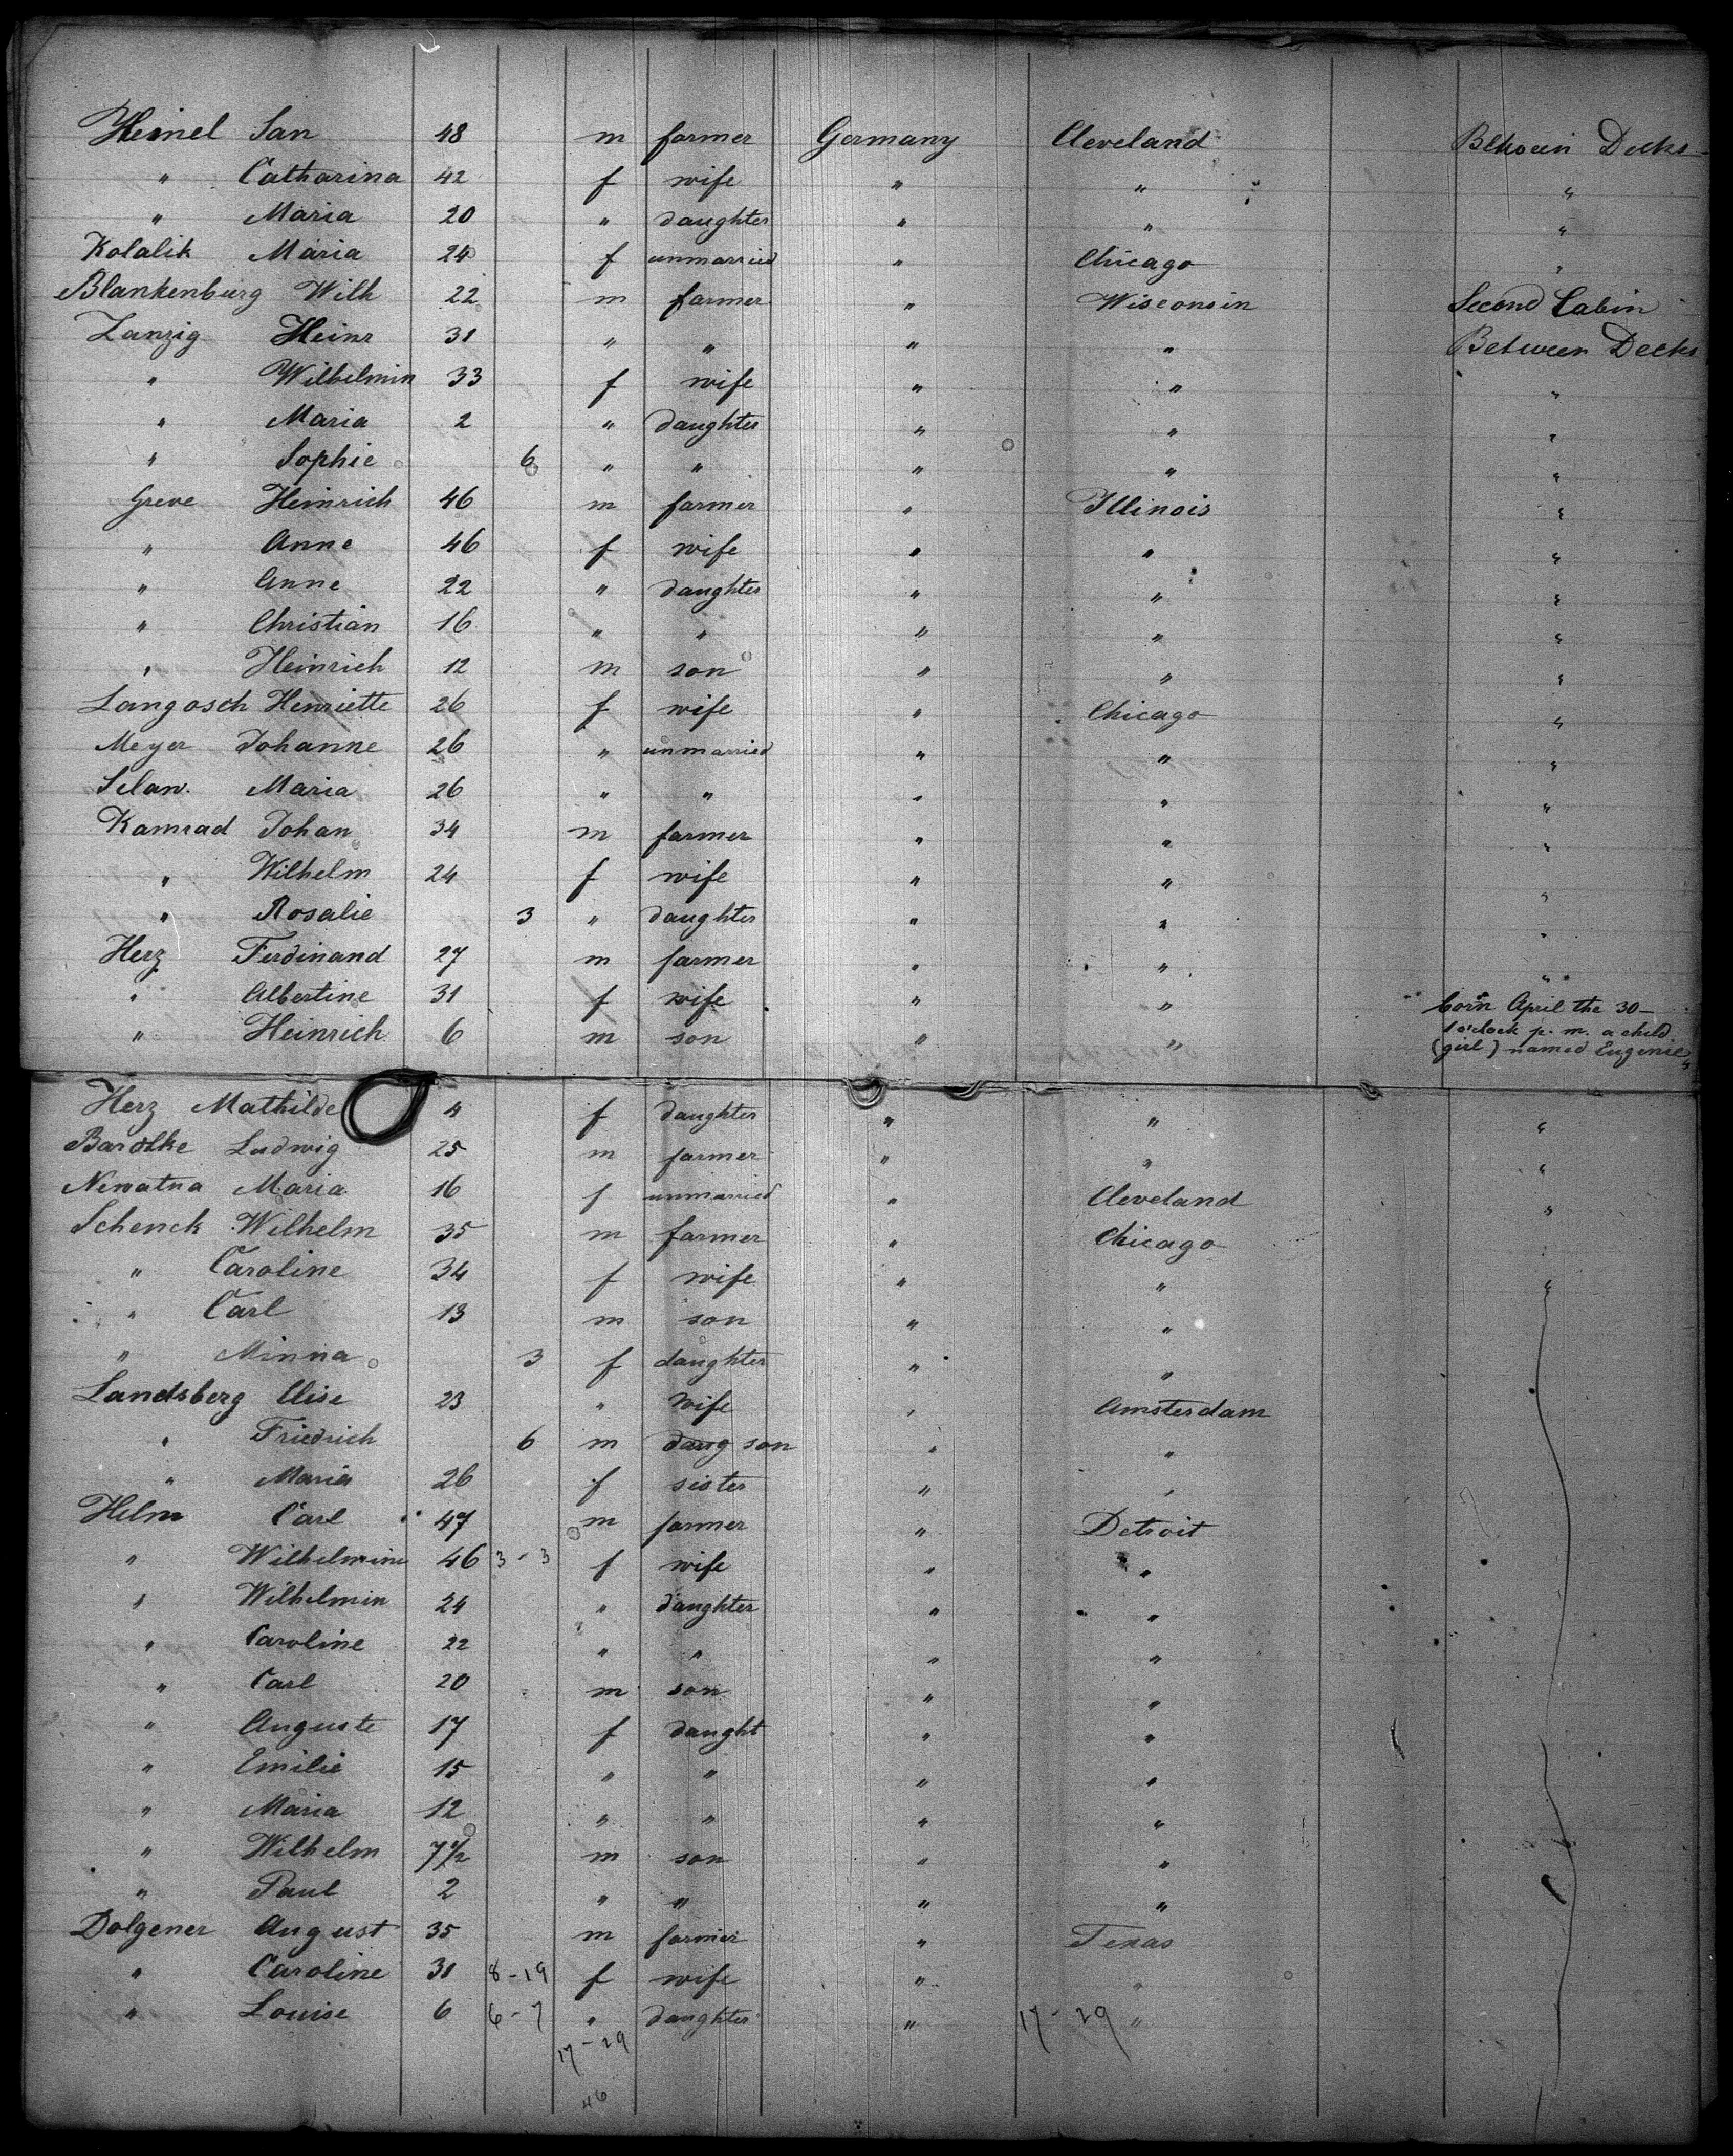 Heinel San 48 m farmer Germany Cleveland Between Decks
" Catharina 42 f wife " " "
" Maria 20 " daughter " " "
Kolalik Maria 24 f unmarried " Chicago "
Blankenburg Wilh 22 m farmer " Wisconsin Second Cabin
Zanzig Heinr 31 " " " " Between Decks
" Wilhelmin 33 f wife " " "
" Maria 2 " daughter " " "
" Sophie 6 " " " " "
Greve Heinrich 46 m farmer " Illinois "
" Anne 46 f wife " " "
" Anne 22 " daughter " " "
" Christian 16 " " " " "
" Heinrich 12 m son " " "
Langosch Henriette 26 f wife " Chicago "
Meyer Johanne 26 " unmarried " " "
Selaw. Maria 26 " " " " "
Kamrad Johan 34 m farmer " " "
" Wilhelm 24 f wife " " "
" Rosalie 3 " daughter " " "
Herz Ferdinand 27 m farmer " " "
" Albertine 31 f wife " " born April the 30—
" Heinrich 6 m son " " 1 o'clock p. m. a child
(girl) named Eugenie "
Herz Mathilde 4 f daughter " " "
Ludwig 25 m farmer " " "
Newatna Maria 16 f unmarried " Cleveland "
Schenck Wilhelm 35 m farmer " Chicago "
" Caroline 34 f wife " " "
" Carl 13 m son " "
" Minna 3 f daughter " "
Landsberg Elise 23 " wife " Amsterdam
" Friedrich 6 m daug son " "
" Maria 26 f sister " "
Helm Carl 47 m farmer " Detroit
" Wilhelmine 46 3-3 f wife " "
" Wilhelmin 24 " daughter " "
" Caroline 22 " " " "
" Carl 20 m son " "
" Auguste 17 f daught " "
" Emilie 15 " " " "
" Maria 12 " " " "
" Wilhelm 7 1/2 m son " "
" Paul 2 " " " "
Dolgener August 35 m farmer " Texas
" Caroline 31 8-19 f wife " "
" Louise 6 6-7 " daughter " 17-29 "
17-29
46